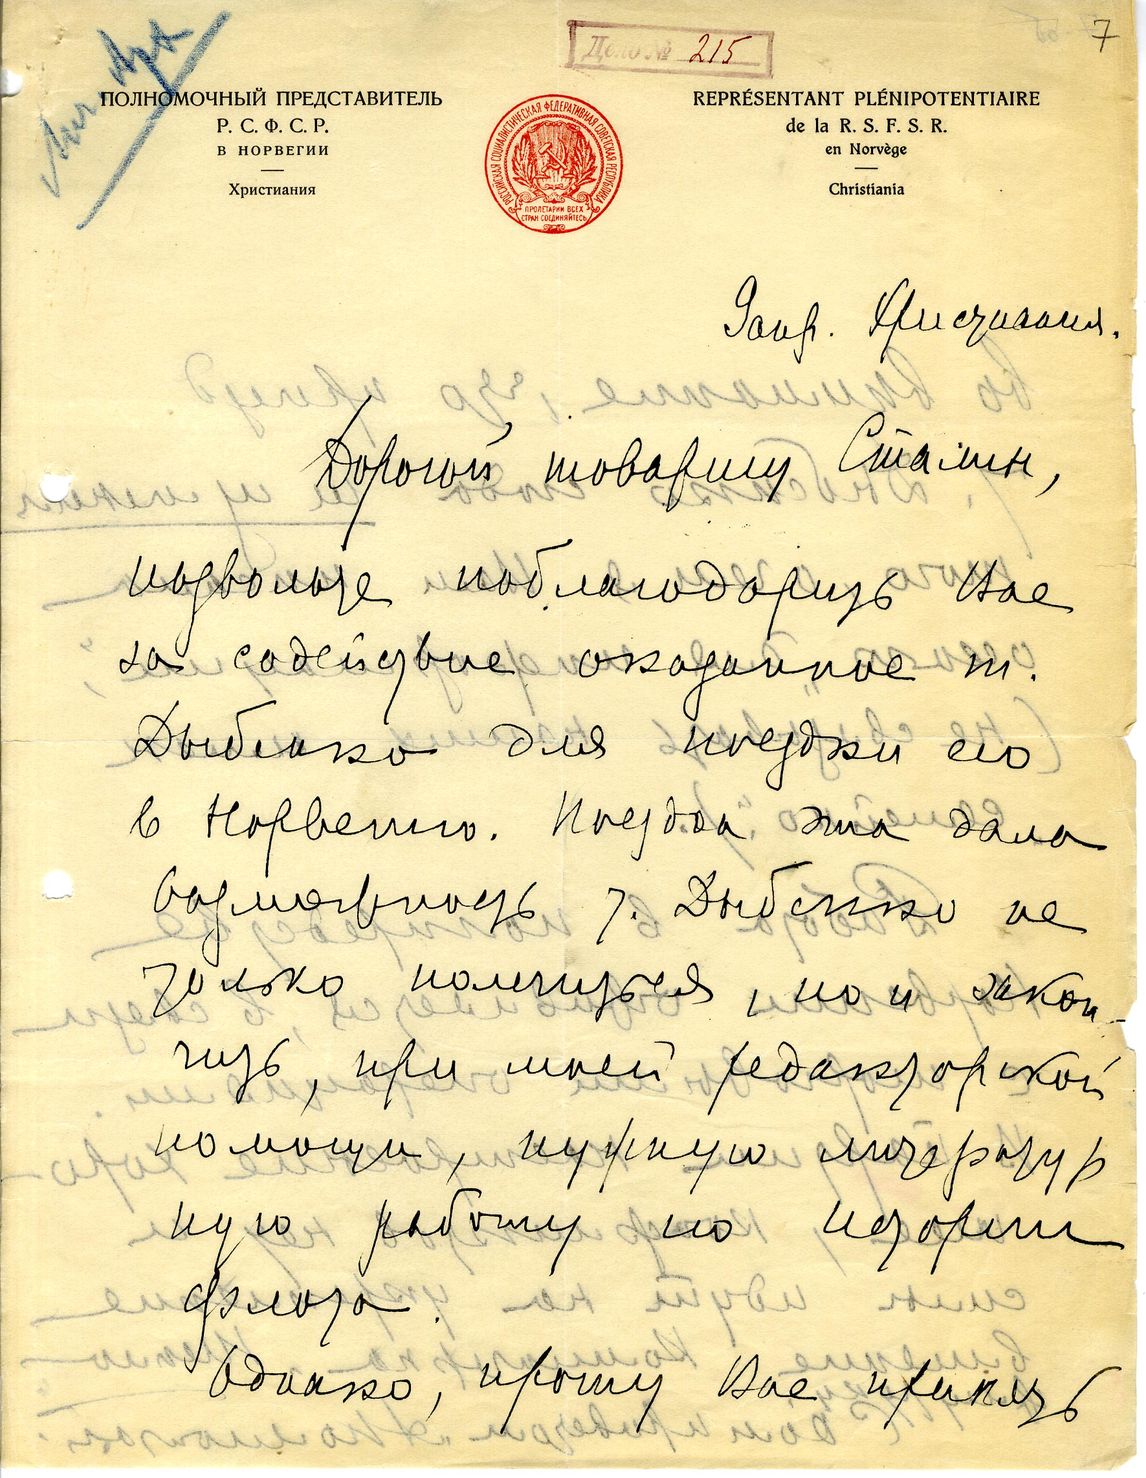 7
Лич. Арх.
Дело № 215
ПОЛНОМОЧНЫЙ ПРЕДСТАВИТЕЛЬ
Р. С. Ф. С. Р.
В НОРВЕГИИ
Христиания
РОССИЙСКАЯ СОЦИАЛИСТИЧЕСКАЯ ФЕДЕРАТИВНАЯ СОВЕТСКАЯ РЕСПУБЛИКА
ПРОЛЕТАРИИ ВСЕХ
СТРАН СОЕДИНЯЙТЕСЬ
REPRÉSENTANT PLÉNIPOTENTIAIRE
de la R. S. F. S. R.
en Norvège
Christiania
Христиания.
Дорогой товарищ Сталин,
позвольте поблагодарить Вас
за содействие оказанное т.
Дыбенко для поездки его
в Норвегию. Поездка эта дала
возможность т. Дыбенко не
только полечиться, но и закон-
чить, при моей редакторской
помощи, нужную литератур
ную работу по истории
флота.
Однако, прошу Вас принять